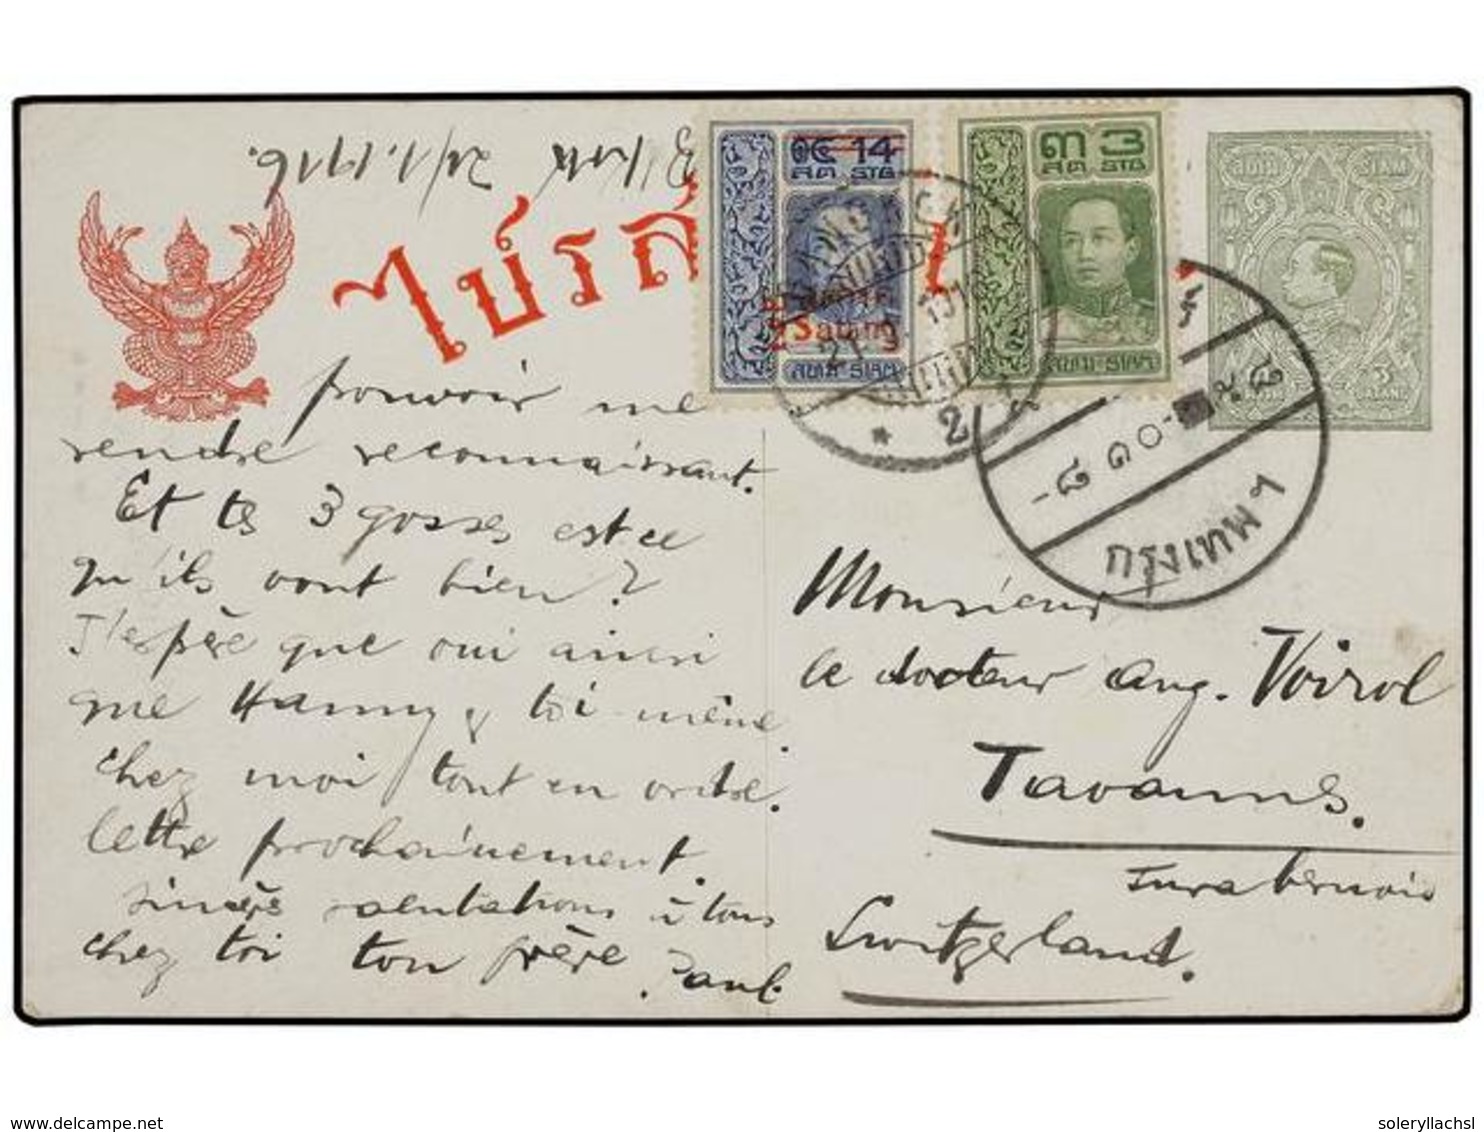 B'kok 21/1.1916.
ไปรสนี
๑๔ 14
สต STG
2 Satang
สยาม SIAM
๓ 3
สต STG
สยาม SIAM
สยาม SIAM
2
กรุงเทพฯ
pouvoir me
rendre reconnaissant.
Et tes 3 gosses est ce
qu'ils vont bien?
J'espère que oui ainsi
que Hanny & toi-même.
Chez moi tout en ordre.
lettre prochainement.
sincères salutations à tous
chez toi ton frère Paul.
Monsieur
le docteur Aug. Voirol
Tavannes.
Jura bernois
Switzerland.
www.delcampe.net
soleryllachsl